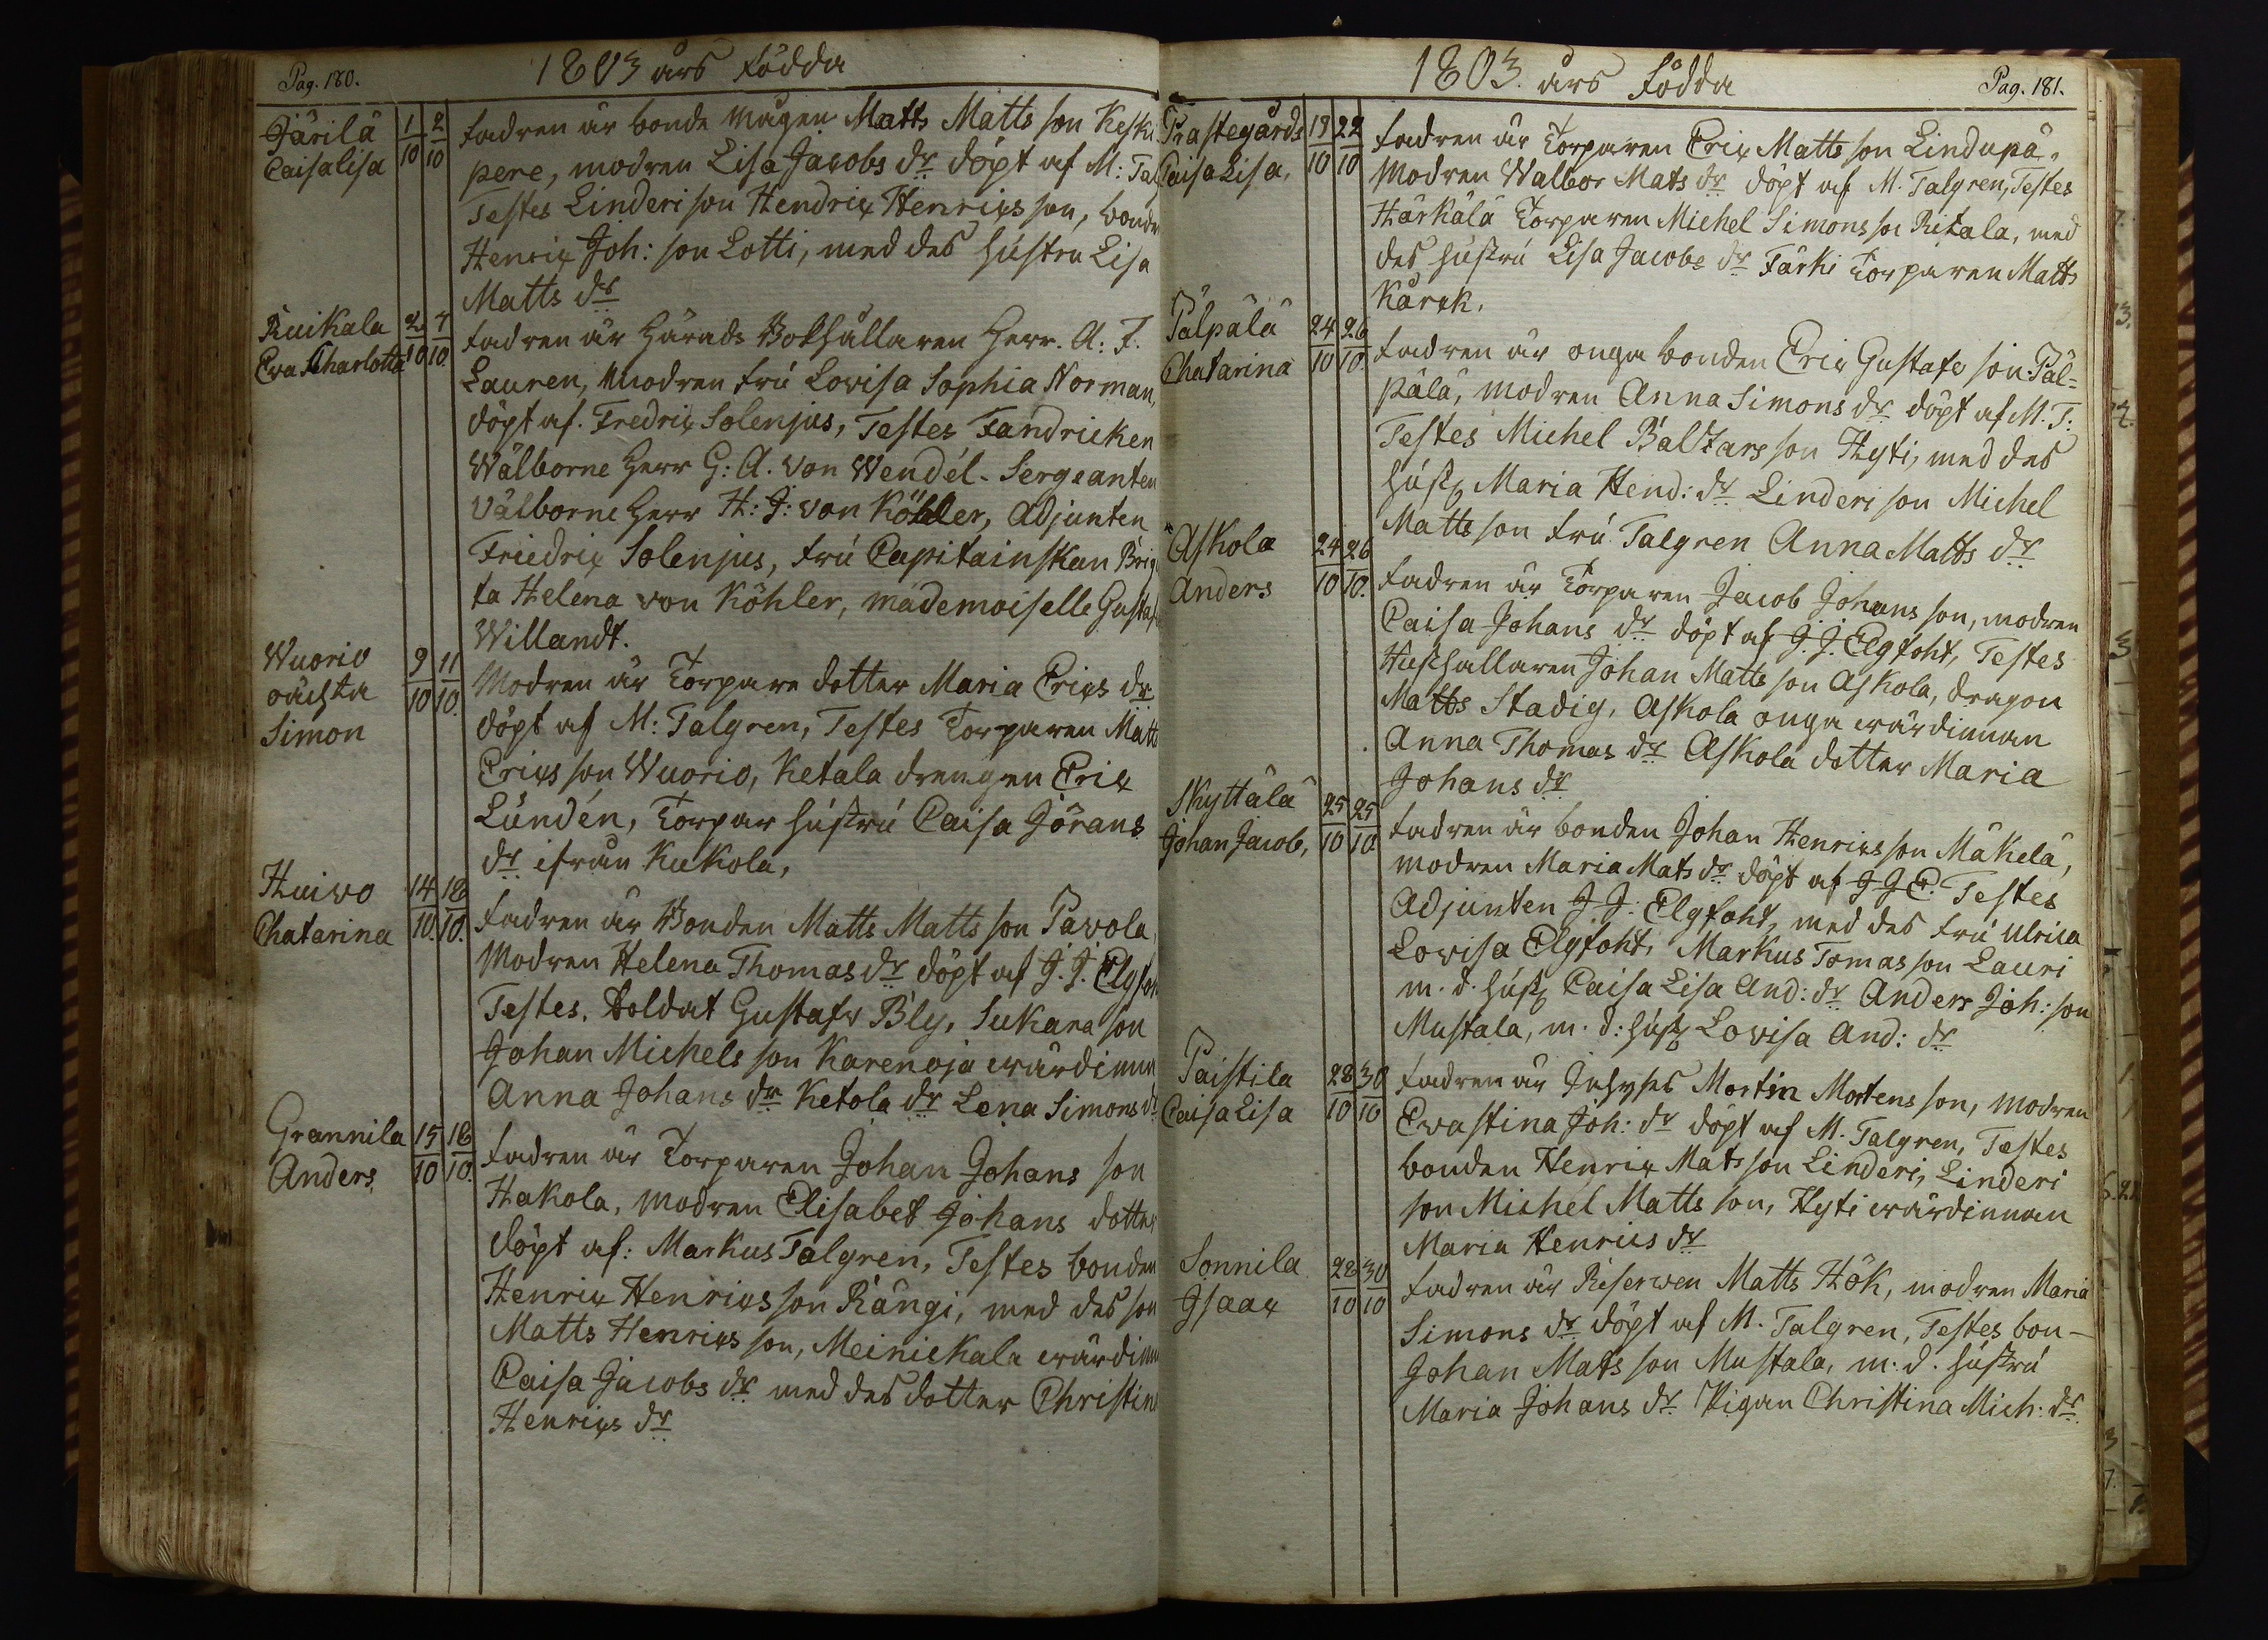 Pag. 180.
1803 års Födda
Järilä
Caisalisa
1/10 2/10
Fadren är bonde mågen Matts Matts son Keski
pere, modren Lisa Jacobs dr döpt af M: Tal
Testes Linderi son Hendrix Henrixs son, bonde
Henrix Joh: son Lotti, med des hustru Lisa
Matts dr
Ruikala
Eva Charlotta
2/10 4/10
Fadren är Härads Bokhållaren Herr. A: F.
Lauren, modren fru Lovisa Sophia Norman,
döpt af. Fredrix Solenjus, Testes Fändricken
Wälborne Herr G: A. von Wendél. Sergeanten
Välborne Herr H: J: von Köhler, Adjunten
Friedrix Solenjus, fru Capitainskan Brig
ta Helena von Köhler, mademoiselle Gustaf
Willandt.
Wuorio
oächta
Simon
9/10 11/10.
Modren är Torpare dotter Maria Erixs dr
döpt af M: Talgren, Testes Torparen Matts
Erixs son Wuorio, Ketala drengen Erix
Lundén, Torpar hustru Caisa Jörans
dr ifrån Kukola,
Huivo
Chatarina
14/10. 18/10.
Fadren är Bonden Matts Matts son Pavola,
Modren Helena Thomas dr döpt af J. J. Elgfoh
Testes. Soldat Gustafv Bly, Sukara son
Johan Michels son Karenoja wärdinn
Anna Johans dr Ketola dr Lena Simons dr
Grannila
Anders
15/10 18/10.
Fadren är Torparen Johan Johans son
Hakola, modren Elisabet Johans dotter
döpt af: Markus Talgren, Testes bonden
Henrix Henrixs son Rängi, med des son
Matts Henrixs son, Meinickala wärdinn
Caisa Jacobs dr med des dotter Christin
Henrixs dr
1803. års Födda
Pag. 181.
Prastegårds
Caisa Lisa,
19/10 22/10
Fadren är Torparen Erix Matts son Lindupä,
Modren Walbor Mats dr döpt af M. Talgren, Testes
Härkälä Torparen Michel Simons son Ritala, med
des hustru Lisa Jacobs dr Färki Torparen Matts
Kärck.
Pälpälä
Chatarina
24/10 26/10.
Fadren är onga bonden Erix Gustafs son Päl-
pälä, modren Anna Simons dr döpt af M. T:
Testes Michel Baltzars son Hyti, med des
hust Maria Hend: dr Linderi son Michel
Matts son fru Talgren Anna Matts dr
Askola
Anders
24/10 26/10.
Fadren är Torparen Jacob Johans son, modren
Caisa Johans dr döpt af J. J. Elgfoht, Testes
Hushallaren Johan Matts son Askola, dragon
Matts Stadig, Askola onga wärdinnan
Anna Thomas dr Askola dotter Maria
Johans dr
Skyttälä
Johan Jacob,
25/10 25/10.
Fadren är bonden Johan Henrixs son Mäkelä,
modren Maria Mats dr döpt af J J E. Testes
Adjunten J. J. Elgfoht, med des fru Ulrica
Lovisa Elgfoht, Markus Tomas son Lauri
m. d. hust Caisa Lisa And: dr Anders Joh: son
Mustala, m. d: hust Lovisa And: dr
Paistila
Caisa Lisa
28/10 30/10
Fadren är Inhyses Mortin Mortens son, modren
Evastina Joh: dr döpt af M. Talgren, Testes
bonden Henrix Mats son Linderi, Linderi
son Michel Matts son, Hyti wärdinnan
Maria Henrics dr
Sonnila
Isaax
28/10 30/10
Fadren är Reserwen Matts Hök, modren Maria
Simons dr döpt af M. Talgren, Testes bon-
Johan Mats son Mustala, m. d. hustru
Maria Johans dr Pigan Christina Mich: dr.